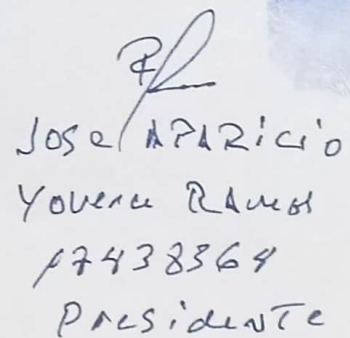 Jose APARicio
Yovera RAmos
17438364
Presidente